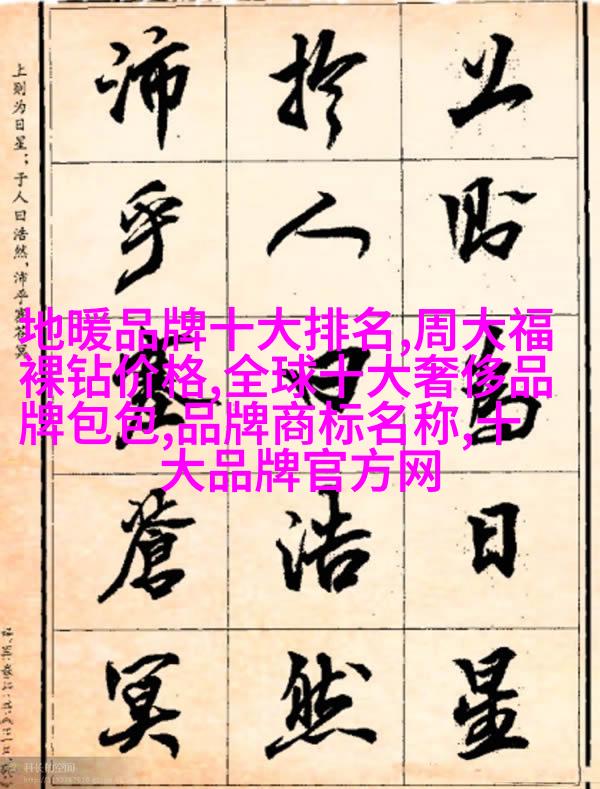 上則為日星
於人曰浩然
沛乎塞蒼冥
上则为日星；于人曰浩然，沛乎塞苍冥
地暖品牌十大排名,周大福
裸钻价格,全球十大奢侈品
牌包包,品牌商标名称,十
大品牌官方网
科长的空间